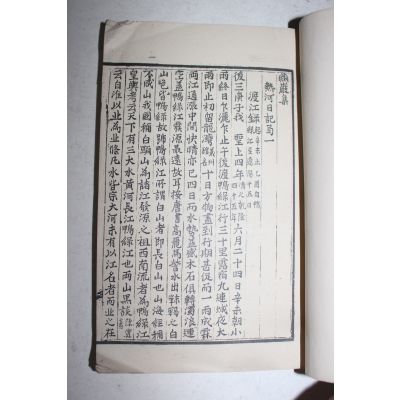 燕巖集
熱河日記卷一
渡江錄 起辛未止乙酉自鴨綠江至遼陽十五日
後三庚子我 聖上四年 清乾隆四十五年 六月二十四日辛未朝小
雨終日乍灑乍止午後渡鴨綠江行三十里露宿九連城夜大
雨即止初留龍灣義州館十日方物盡到行期甚促而一雨成霖
兩江通漲中間快晴亦已四日而水勢益盛木石俱轉濁浪連
空盖鴨綠江發源最遠故耳按唐書高麗馬訾水出靺鞨之白
山色若鴨頭故號鴨綠江所謂白山者即長白山也山海經稱
不咸山我國稱白頭山爲諸江發源之祖西南流者爲鴨綠江
皇輿考云天下有三大水黃河長江鴨綠江也兩山墨談陳霆著
云自淮以北爲北條凡水皆宗大河未有以江名者而北之在